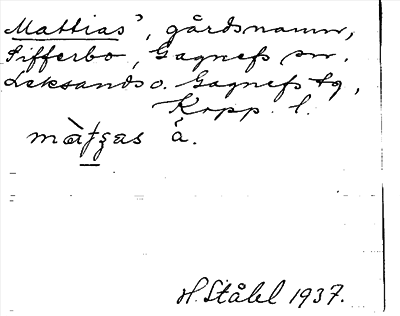 Mattias', gårdsnamn,
Sifferbo, Gagnefs sn.
Leksands o. Gagnefs tg,
Kopp. l.
å.
H. Ståhl 1937.